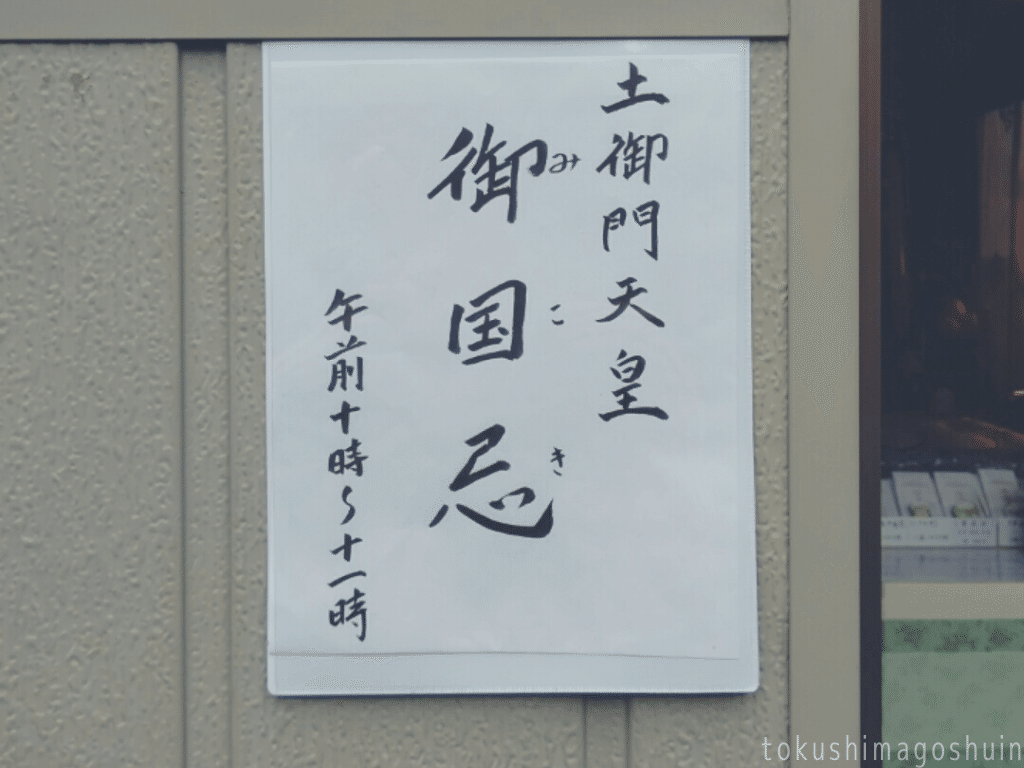 土御門天皇
御国忌
みこき
午前十時~十一時
tokushimagoshuin